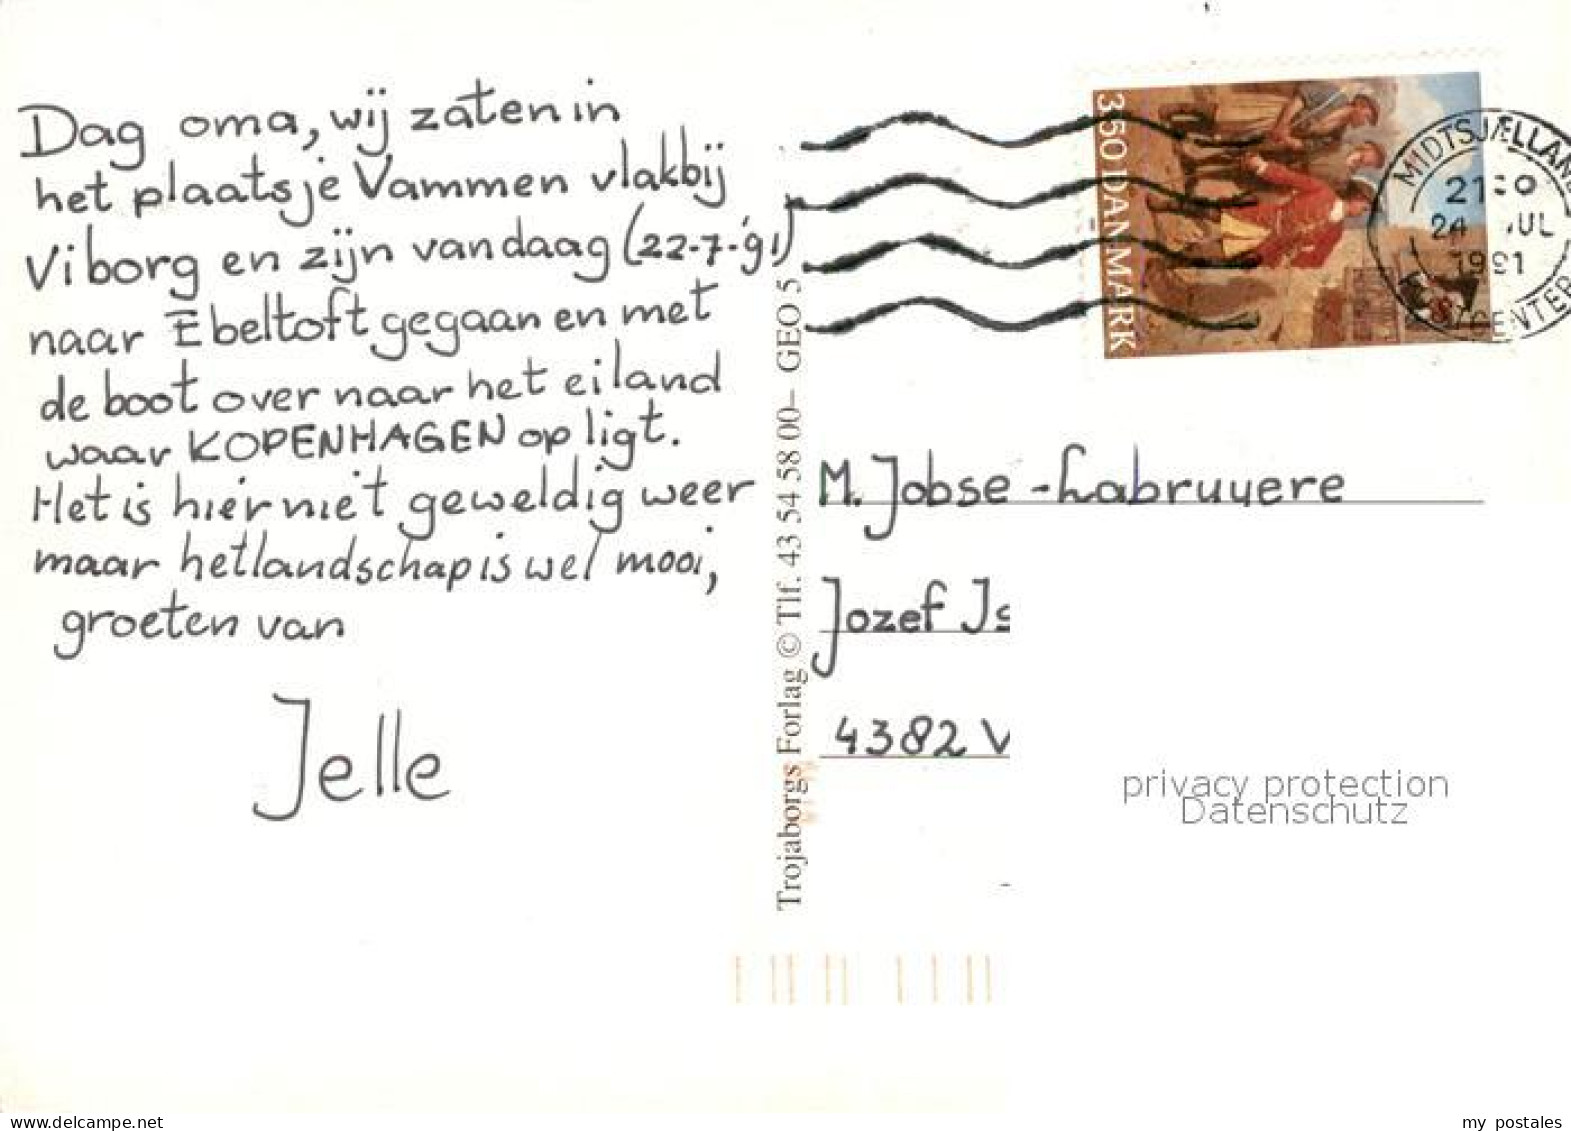 Dag oma, wij zaten in
het plaatsje Vammen vlakbij
Viborg en zijn vandaag (22-7-'91)
naar Ebeltoft gegaan en met
de boot over naar het eiland
waar KOPENHAGEN op ligt.
Het is hier niet geweldig weer
maar het landschap is wel mooi,
groeten van
Jelle
Trojaborgs Forlag © Tlf. 43 54 58 00– GEO 5
350 DANMARK
MIDTSJÆLLAND
24 JUL
1991
M. Jobse - Labruyere
Jozef Is
4382 V
privacy protection
Datenschutz
www.delcampe.net
my_postales